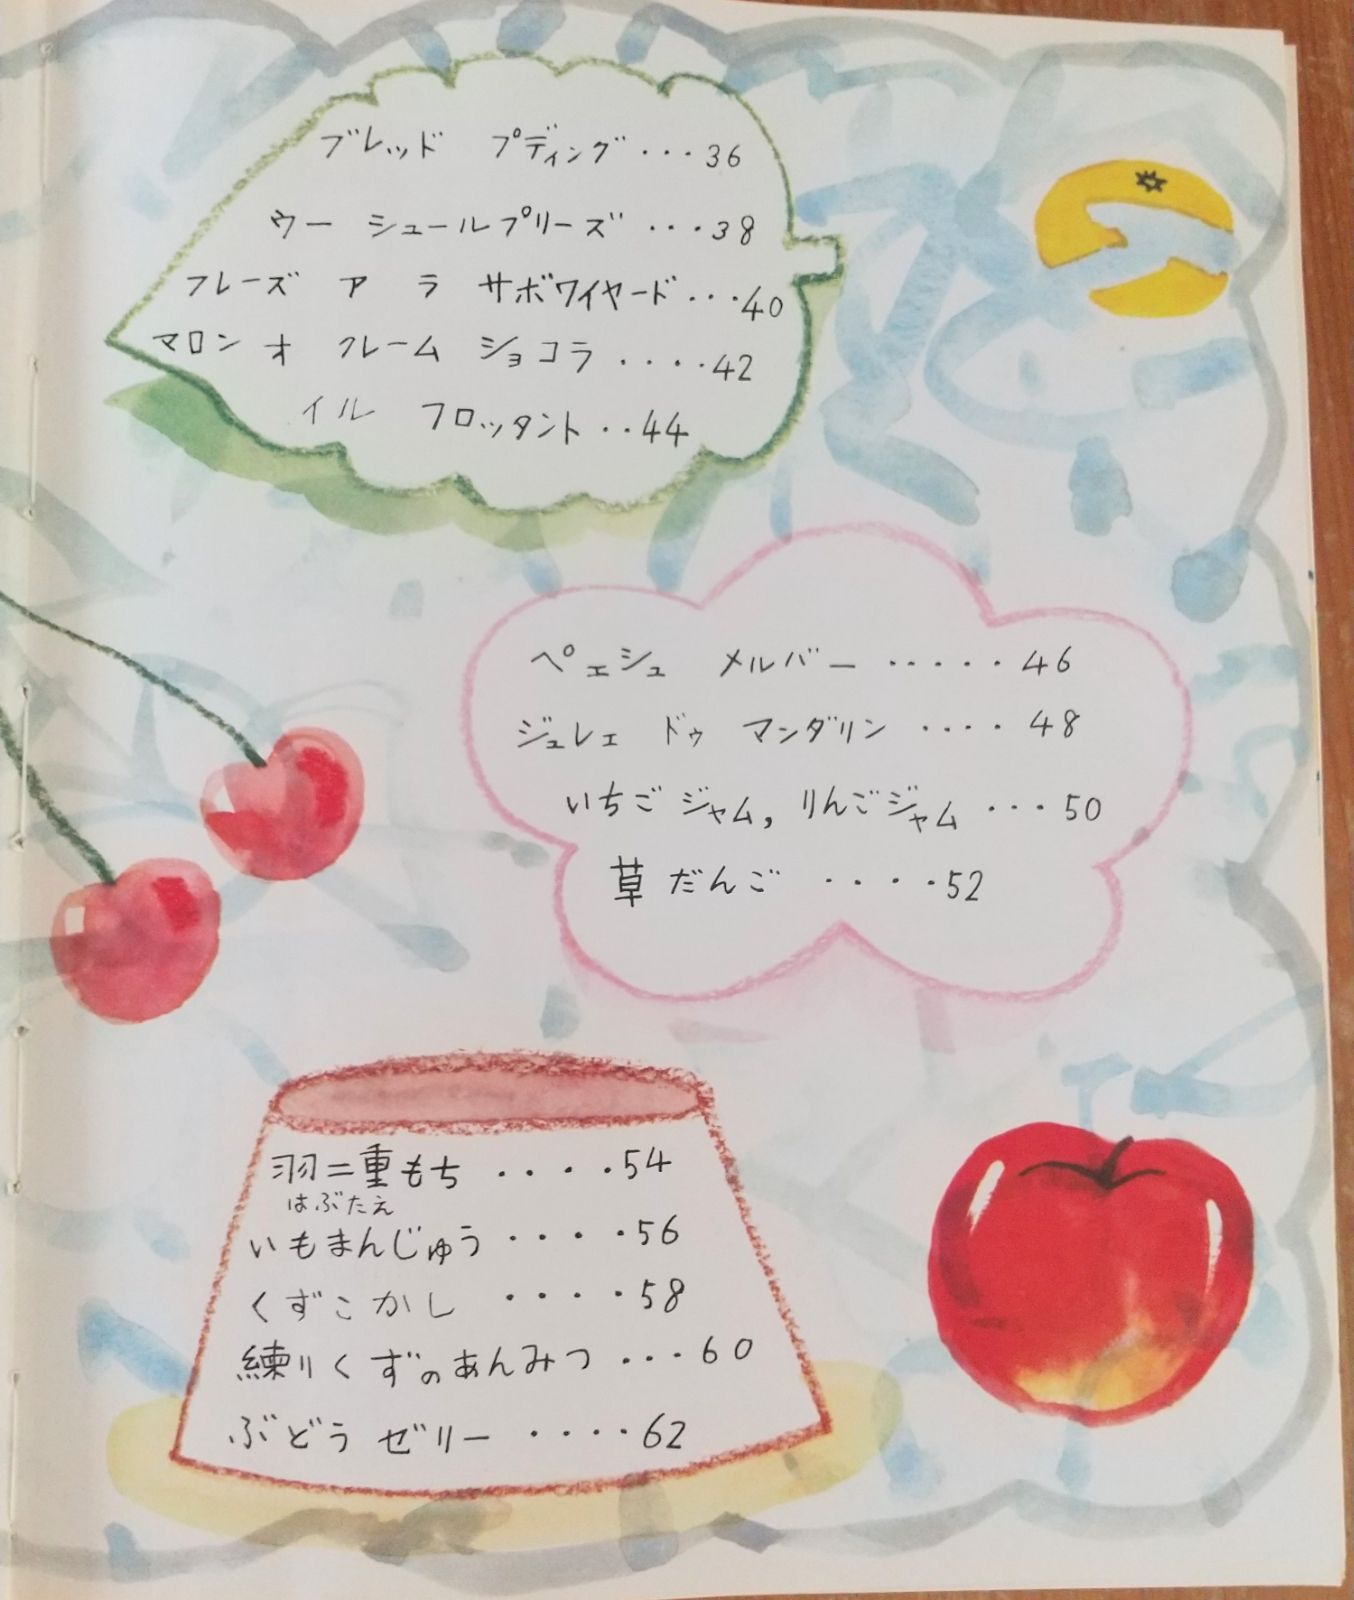 ブレッド プディング・・・36
ウー シュールプリーズ ・・・38
フレーズ ア ラ サボワイヤード・・・40
マロン オ クレーム ショコラ ・・・・42
イル フロッタント ・・44
ペェシュ メルバー ・・・・・46
ジュレェ ドゥ マンダリン ・・・・48
いちごジャム, りんごジャム ・・・50
草だんご ・・・・52
羽二重もち ・・・・54
はぶたえ
いもまんじゅう ・・・・56
くずこかし ・・・・58
練りくずのあんみつ ・・・60
ぶどうゼリー ・・・・62